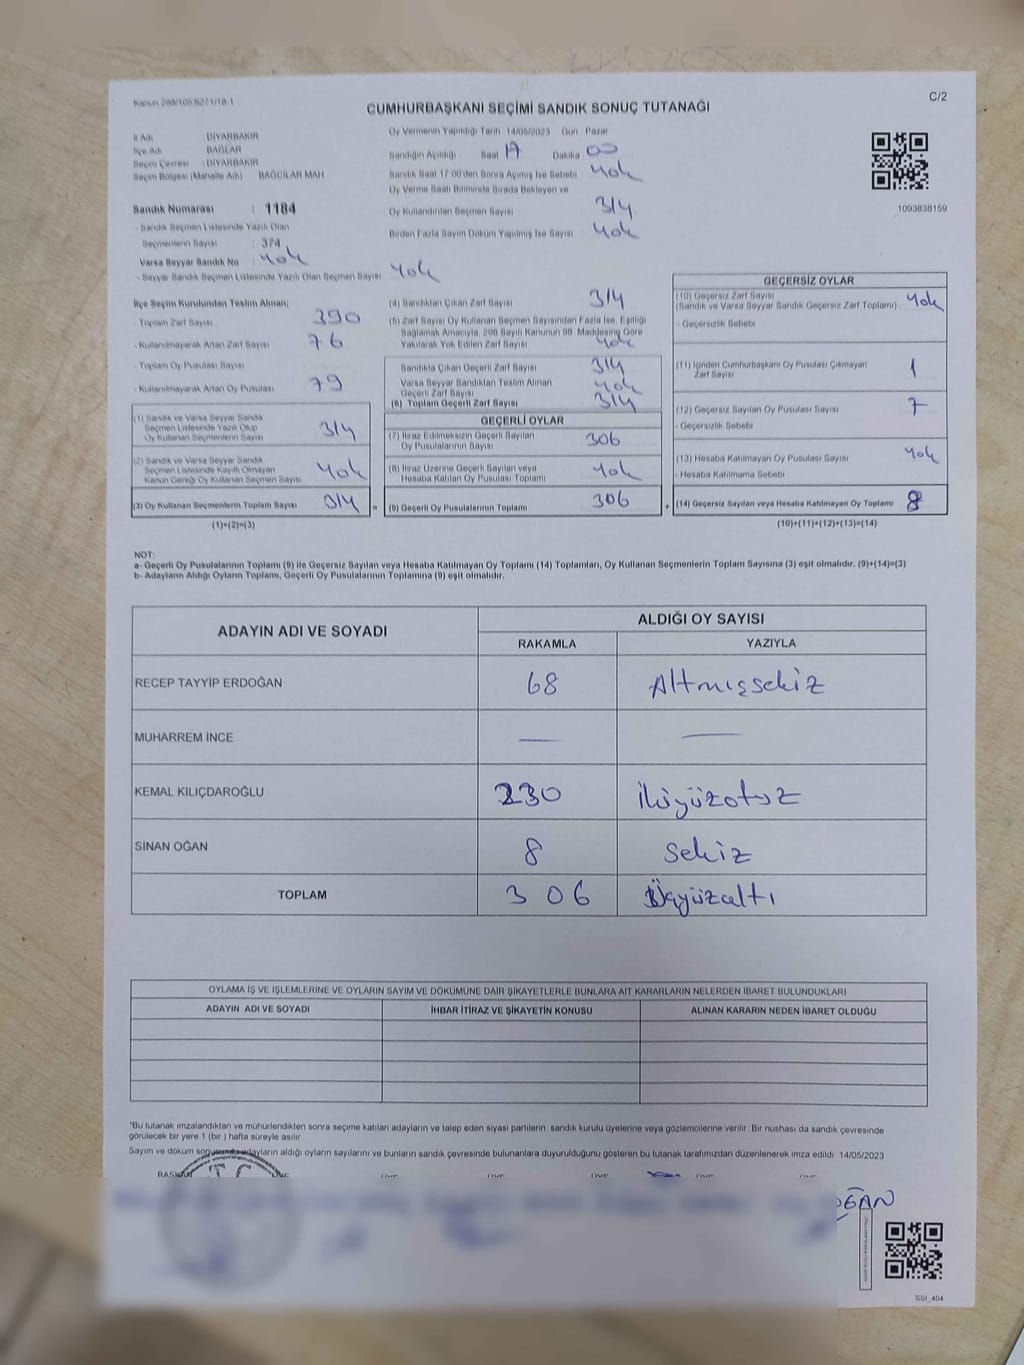 Kanun 298/105,6271/18-1
C/2
CUMHURBAŞKANI SEÇİMİ SANDIK SONUÇ TUTANAĞI
İl Adı : DİYARBAKIR
İlçe Adı : BAĞLAR
Seçim Çevresi : DİYARBAKIR
Seçim Bölgesi (Mahalle Adı) BAĞCILAR MAH
Sandık Numarası : 1184
- Sandık Seçmen Listesinde Yazılı Olan
Seçmenlerin Sayısı : 374
Varsa Seyyar Sandık No : Yok
- Seyyar Sandık Seçmen Listesinde Yazılı Olan Seçmen Sayısı Yok
Oy Vermenin Yapıldığı Tarih 14/05/2023 Gün Pazar
Sandığın Açıldığı Saat 17 Dakika 00
Sandık Saat 17:00'den Sonra Açılmış İse Sebebi Yok
Oy Verme Saati Bitiminde Sırada Bekleyen ve
Oy Kullandırılan Seçmen Sayısı 314
Birden Fazla Sayım Döküm Yapılmış İse Sayısı Yok
1093838159
İlçe Seçim Kurulundan Teslim Alınan;
- Toplam Zarf Sayısı 390
- Kullanılmayarak Artan Zarf Sayısı 76
- Toplam Oy Pusulası Sayısı
- Kullanılmayarak Artan Oy Pusulası 79
(1) Sandık ve Varsa Seyyar Sandık
Seçmen Listesinde Yazılı Olup
Oy Kullanan Seçmenlerin Sayısı 314
(2) Sandık ve Varsa Seyyar Sandık
Seçmen Listesinde Kayıtlı Olmayan
Kanun Gereği Oy Kullanan Seçmen Sayısı Yok
(3) Oy Kullanan Seçmenlerin Toplam Sayısı 314 =
(1)+(2)=(3)
(4) Sandıktan Çıkan Zarf Sayısı 314
(5) Zarf Sayısı Oy Kullanan Seçmen Sayısından Fazla İse, Eşitliği
Sağlamak Amacıyla, 298 Sayılı Kanunun 98. Maddesine Göre
Yakılarak Yok Edilen Zarf Sayısı Yok
Sandıkta Çıkan Geçerli Zarf Sayısı 314
Varsa Seyyar Sandıktan Teslim Alınan
Geçerli Zarf Sayısı Yok
(6) Toplam Geçerli Zarf Sayısı 314
GEÇERLİ OYLAR
(7) İtiraz Edilmeksizin Geçerli Sayılan
Oy Pusulalarının Sayısı 306
(8) İtiraz Üzerine Geçerli Sayılan veya
Hesaba Katılan Oy Pusulası Toplamı Yok
(9) Geçerli Oy Pusulalarının Toplamı 306 +
GEÇERSİZ OYLAR
(10) Geçersiz Zarf Sayısı
(Sandık ve Varsa Seyyar Sandık Geçersiz Zarf Toplamı) Yok
- Geçersizlik Sebebi
(11) İçinden Cumhurbaşkanı Oy Pusulası Çıkmayan
Zarf Sayısı 1
(12) Geçersiz Sayılan Oy Pusulası Sayısı 7
- Geçersizlik Sebebi
(13) Hesaba Katılmayan Oy Pusulası Sayısı Yok
- Hesaba Katılmama Sebebi
(14) Geçersiz Sayılan veya Hesaba Katılmayan Oy Toplamı 8
(10)+(11)+(12)+(13)=(14)
NOT:
a- Geçerli Oy Pusulalarının Toplamı (9) ile Geçersiz Sayılan veya Hesaba Katılmayan Oy Toplamı (14) Toplamları, Oy Kullanan Seçmenlerin Toplam Sayısına (3) eşit olmalıdır. (9)+(14)=(3)
b- Adayların Aldığı Oyların Toplamı, Geçerli Oy Pusulalarının Toplamına (9) eşit olmalıdır.
ADAYIN ADI VE SOYADI
ALDIĞI OY SAYISI
RAKAMLA YAZIYLA
RECEP TAYYİP ERDOĞAN 68 Altmışsekiz
MUHARREM İNCE — —
KEMAL KILIÇDAROĞLU 230 İkiyüzotuz
SİNAN OĞAN 8 Sekiz
TOPLAM 306 Üçyüzaltı
OYLAMA İŞ VE İŞLEMLERİNE VE OYLARIN SAYIM VE DÖKÜMÜNE DAİR ŞİKAYETLERLE BUNLARA AİT KARARLARIN NELERDEN İBARET BULUNDUKLARI
ADAYIN ADI VE SOYADI İHBAR İTİRAZ VE ŞİKAYETİN KONUSU ALINAN KARARIN NEDEN İBARET OLDUĞU
*Bu tutanak imzalandıktan ve mühürlendikten sonra seçime katılan adayların ve talep eden siyasi partilerin sandık kurulu üyelerine veya gözlemcilerine verilir. Bir nüshası da sandık çevresinde
görülecek bir yere 1 (bir) hafta süreyle asılır
Sayım ve döküm sonucunda adayların aldığı oyların sayılarını ve bunların sandık çevresinde bulunanlara duyurulduğunu gösteren bu tutanak tarafımızdan düzenlenerek imza edildi 14/05/2023
BAŞKAN
T C
SSI_404